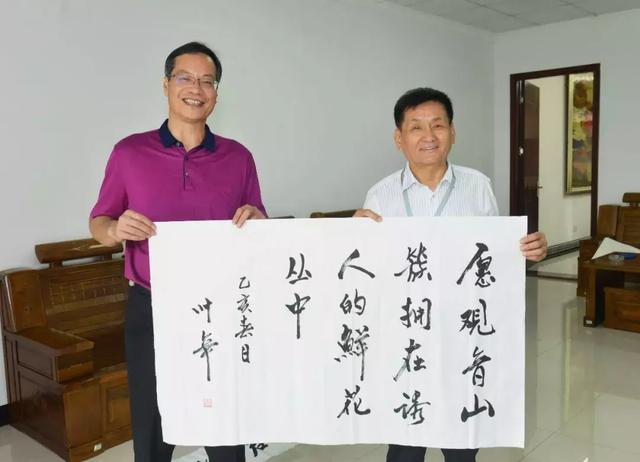 愿观音山
簇拥在诱
人的鲜花
丛中
乙亥春日
叶华